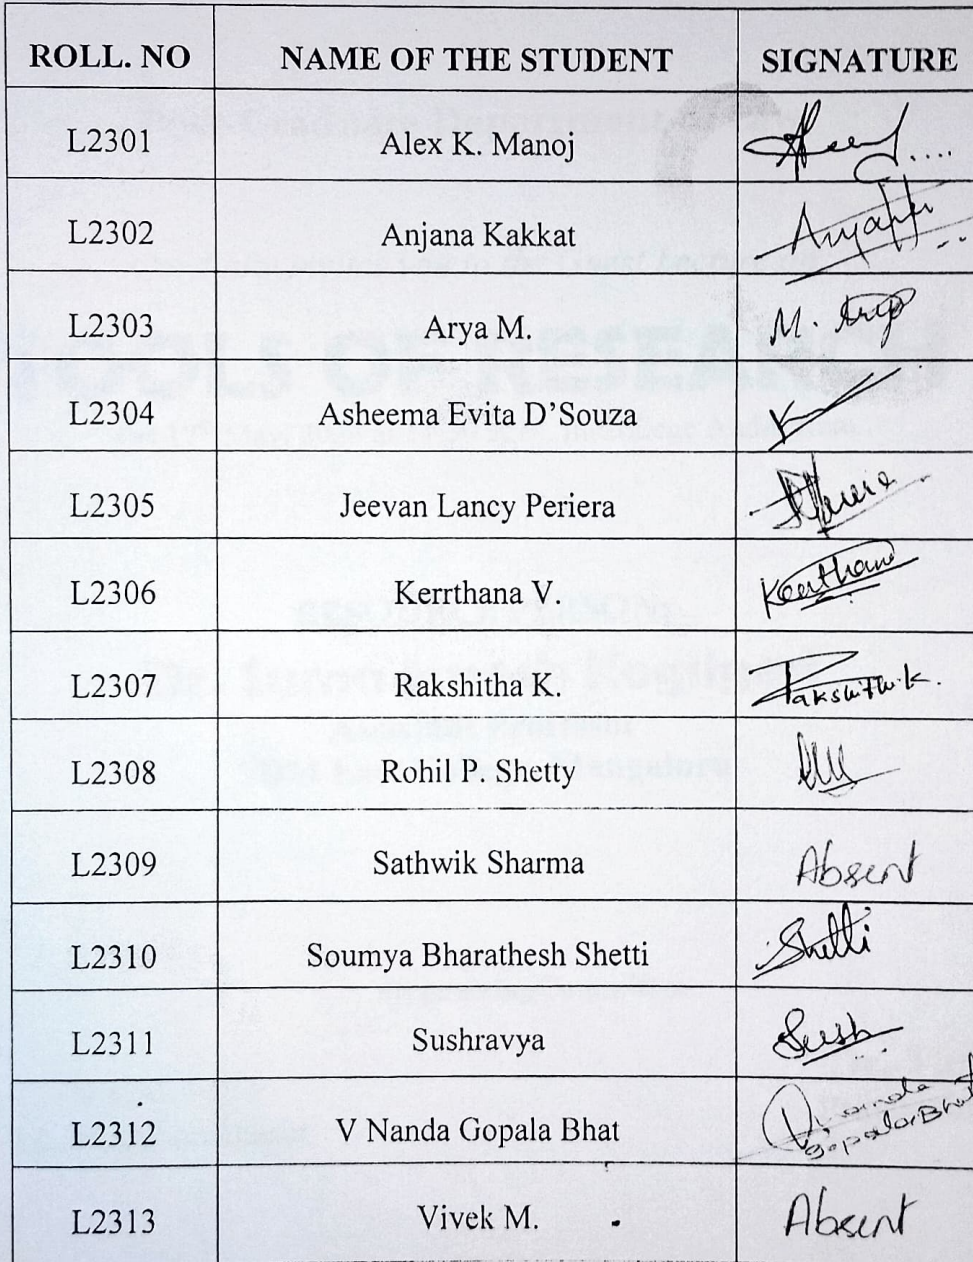 ROLL. NO NAME OF THE STUDENT SIGNATURE
L2301 Alex K. Manoj
L2302 Anjana Kakkat
L2303 Arya M. M.
L2304 Asheema Evita D'Souza
L2305 Jeevan Lancy Periera
L2306 Kerrthana V. Keerthana
L2307 Rakshitha K.
L2308 Rohil P. Shetty
L2309 Sathwik Sharma Absent
L2310 Soumya Bharathesh Shetti Shetti
L2311 Sushravya Sush
L2312 V Nanda Gopala Bhat
L2313 Vivek M. Absent